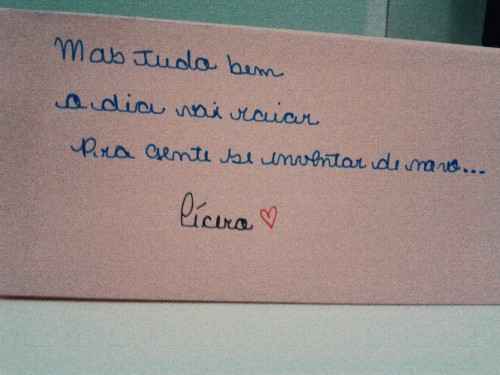 Mas tudo bem
o dia vai raiar
Pra gente se inventar de novo...
Cícero